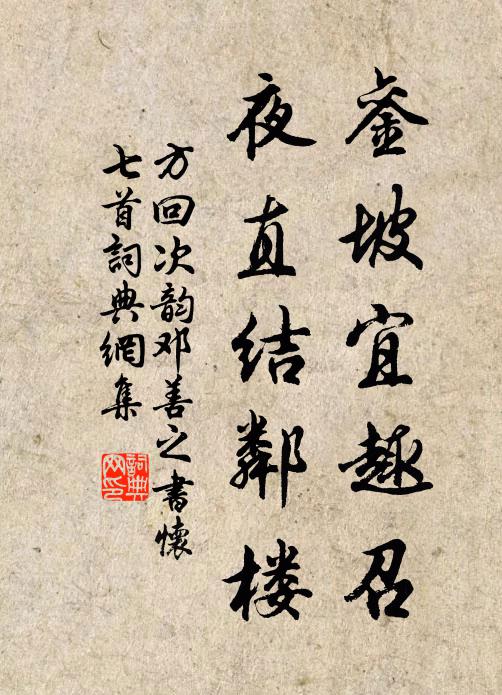 銮坡宜趣召
夜直结鄰楼
方回次韵邓善之書懷
七首詞典網集
詞典网印